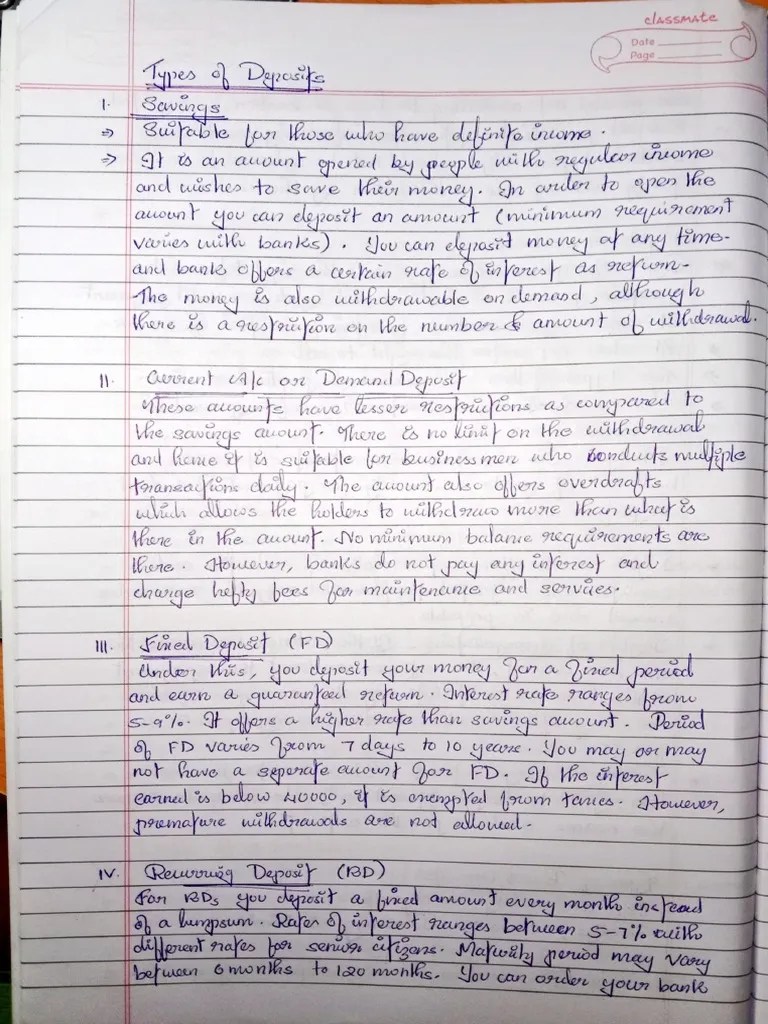 classmate
Date
Page
Types of Deposits
I. Savings
⇒ Suitable for those who have definite income.
⇒ It is an account opened by people with regular income
and wishes to save their money. In order to open the
account you can deposit an amount (minimum requirement
varies with banks). You can deposit money at any time
and bank offers a certain rate of interest as return.
The money is also withdrawable on demand, although
there is a restriction on the number & amount of withdrawal.
II. Current A/c or Demand Deposit
These accounts have lesser restrictions as compared to
the savings account. There is no limit on the withdrawal
and hence it is suitable for businessmen who conducts multiple
transactions daily. The account also offers overdrafts
which allows the holders to withdraw more than what is
there in the account. No minimum balance requirements are
there. However, banks do not pay any interest and
charge hefty fees for maintenance and services.
III. Fixed Deposit (FD)
Under this, you deposit your money for a fixed period
and earn a guaranteed return. Interest rate ranges from
5-9%. It offers a higher rate than savings account. Period
of FD varies from 7 days to 10 years. You may or may
not have a seperate account for FD. If the interest
earned is below 40000, it is exempted from taxes. However,
premature withdrawals are not allowed.
IV. Recurring Deposit (RD)
For RDs you deposit a fixed amount every month instead
of a lumpsum. Rates of interest ranges between 5-7% with
different rates for senior citizens. Maturity period may vary
between 6 months to 120 months. You can order your bank